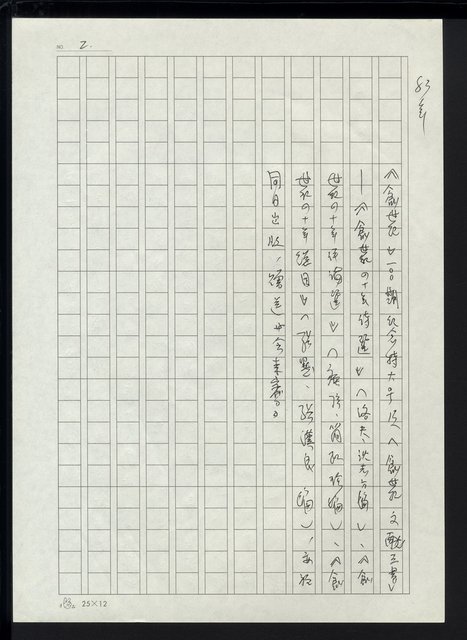 NO. 2.
83年
《創世紀》一〇〇期紀念特大号及《創世紀文獻三書》
—《創世紀四十年詩選》(洛夫、沈志方編)、《創
世紀四十年評論選》(瘂弦、簡政珍編)、《創
世紀四十年總目》(張默、張漢良編),
同日出版,贈送与会来賓。
25×12